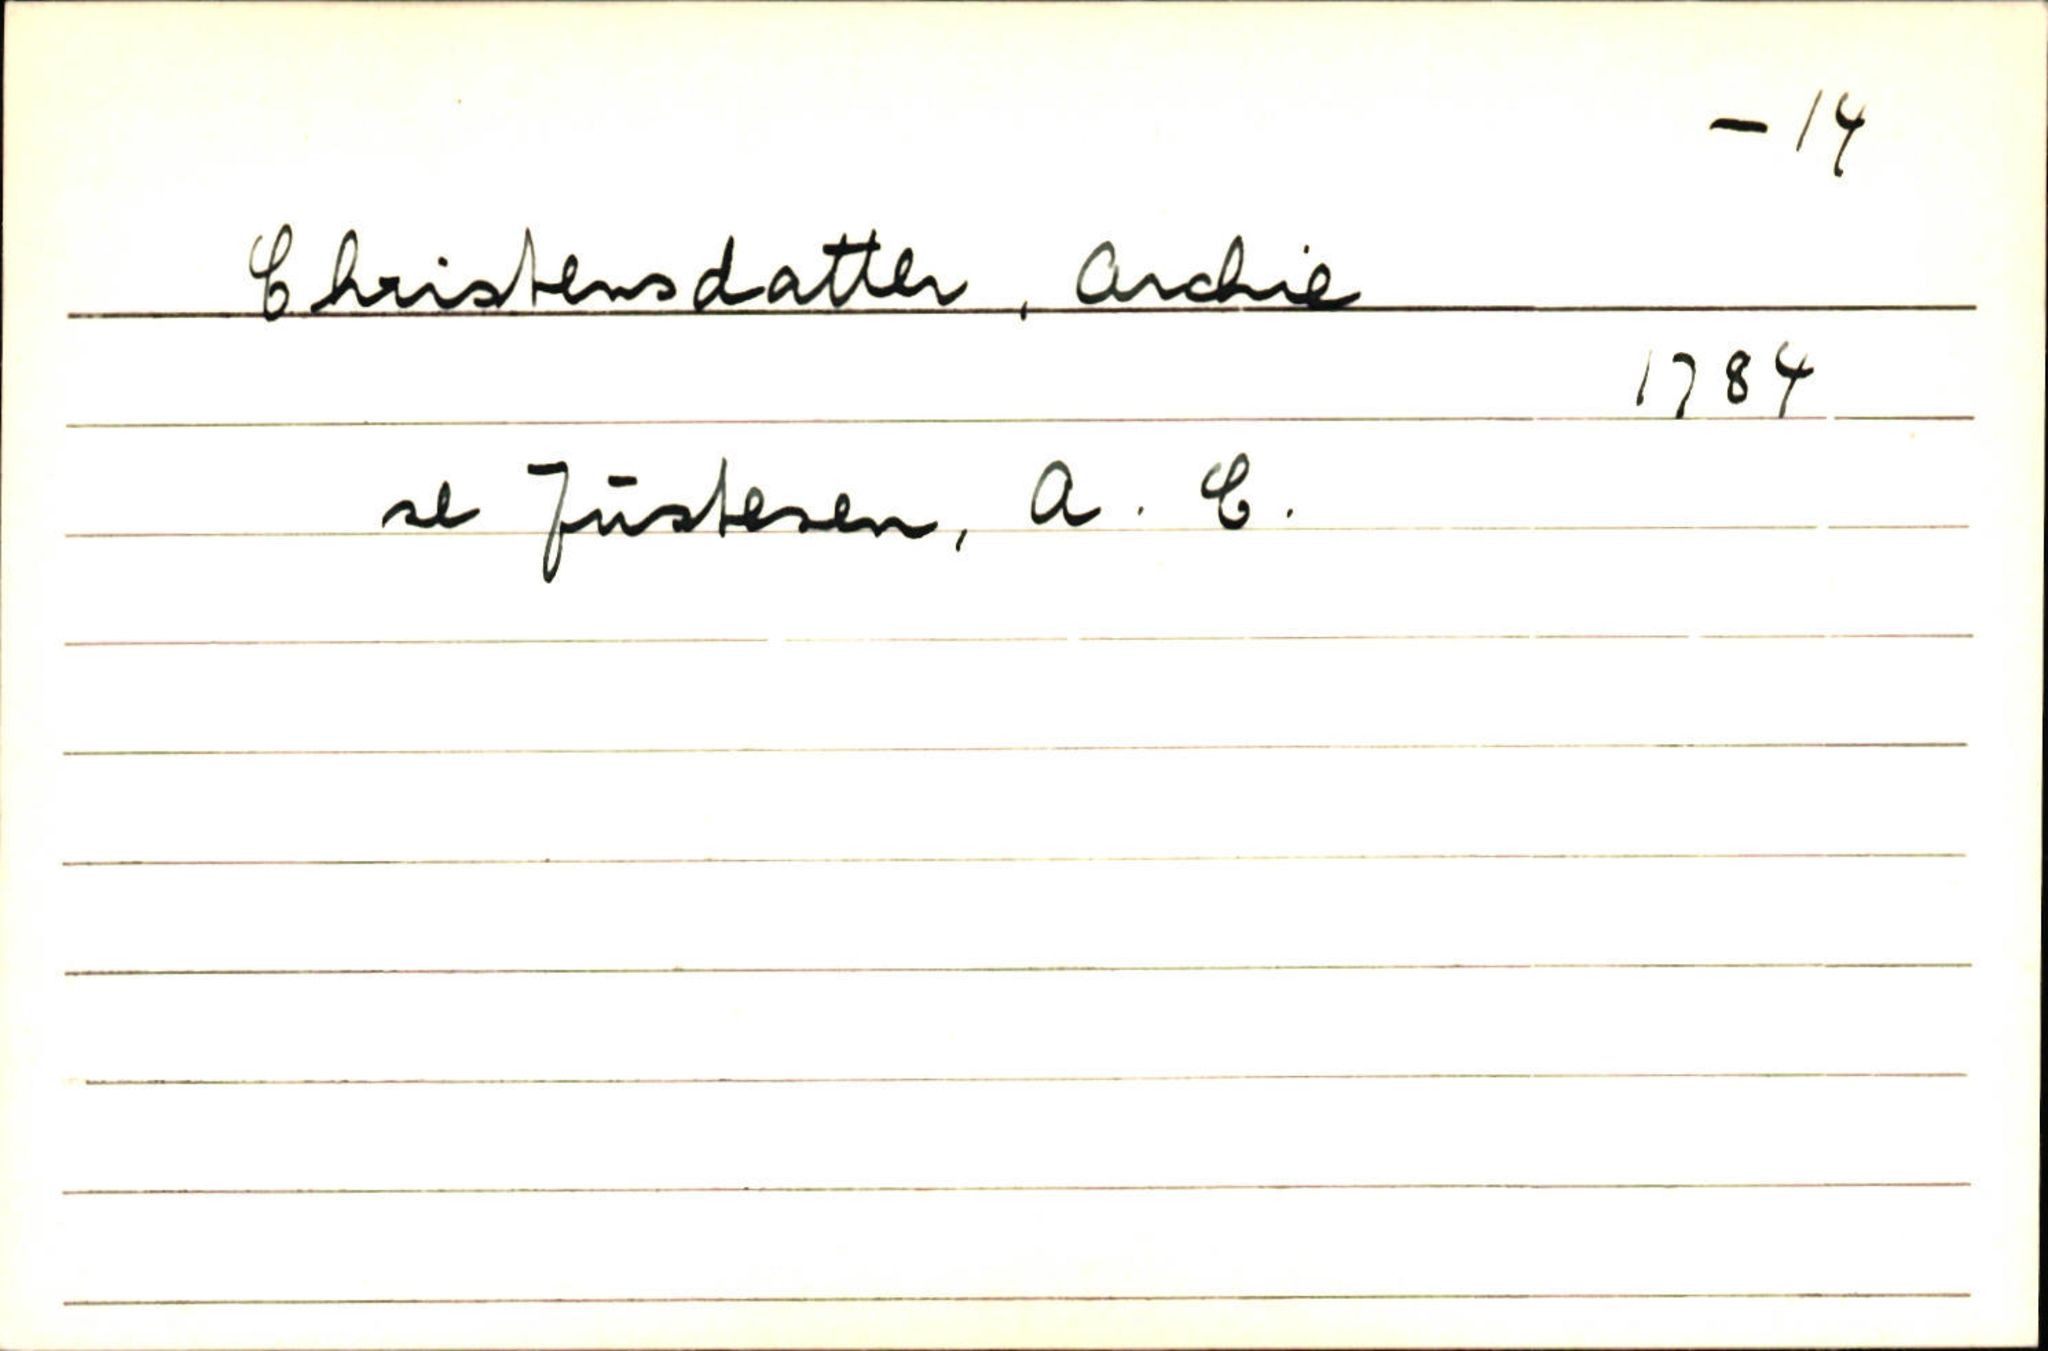 - 14
Christensdatter, Archie
1784
se Justesen, A. C.